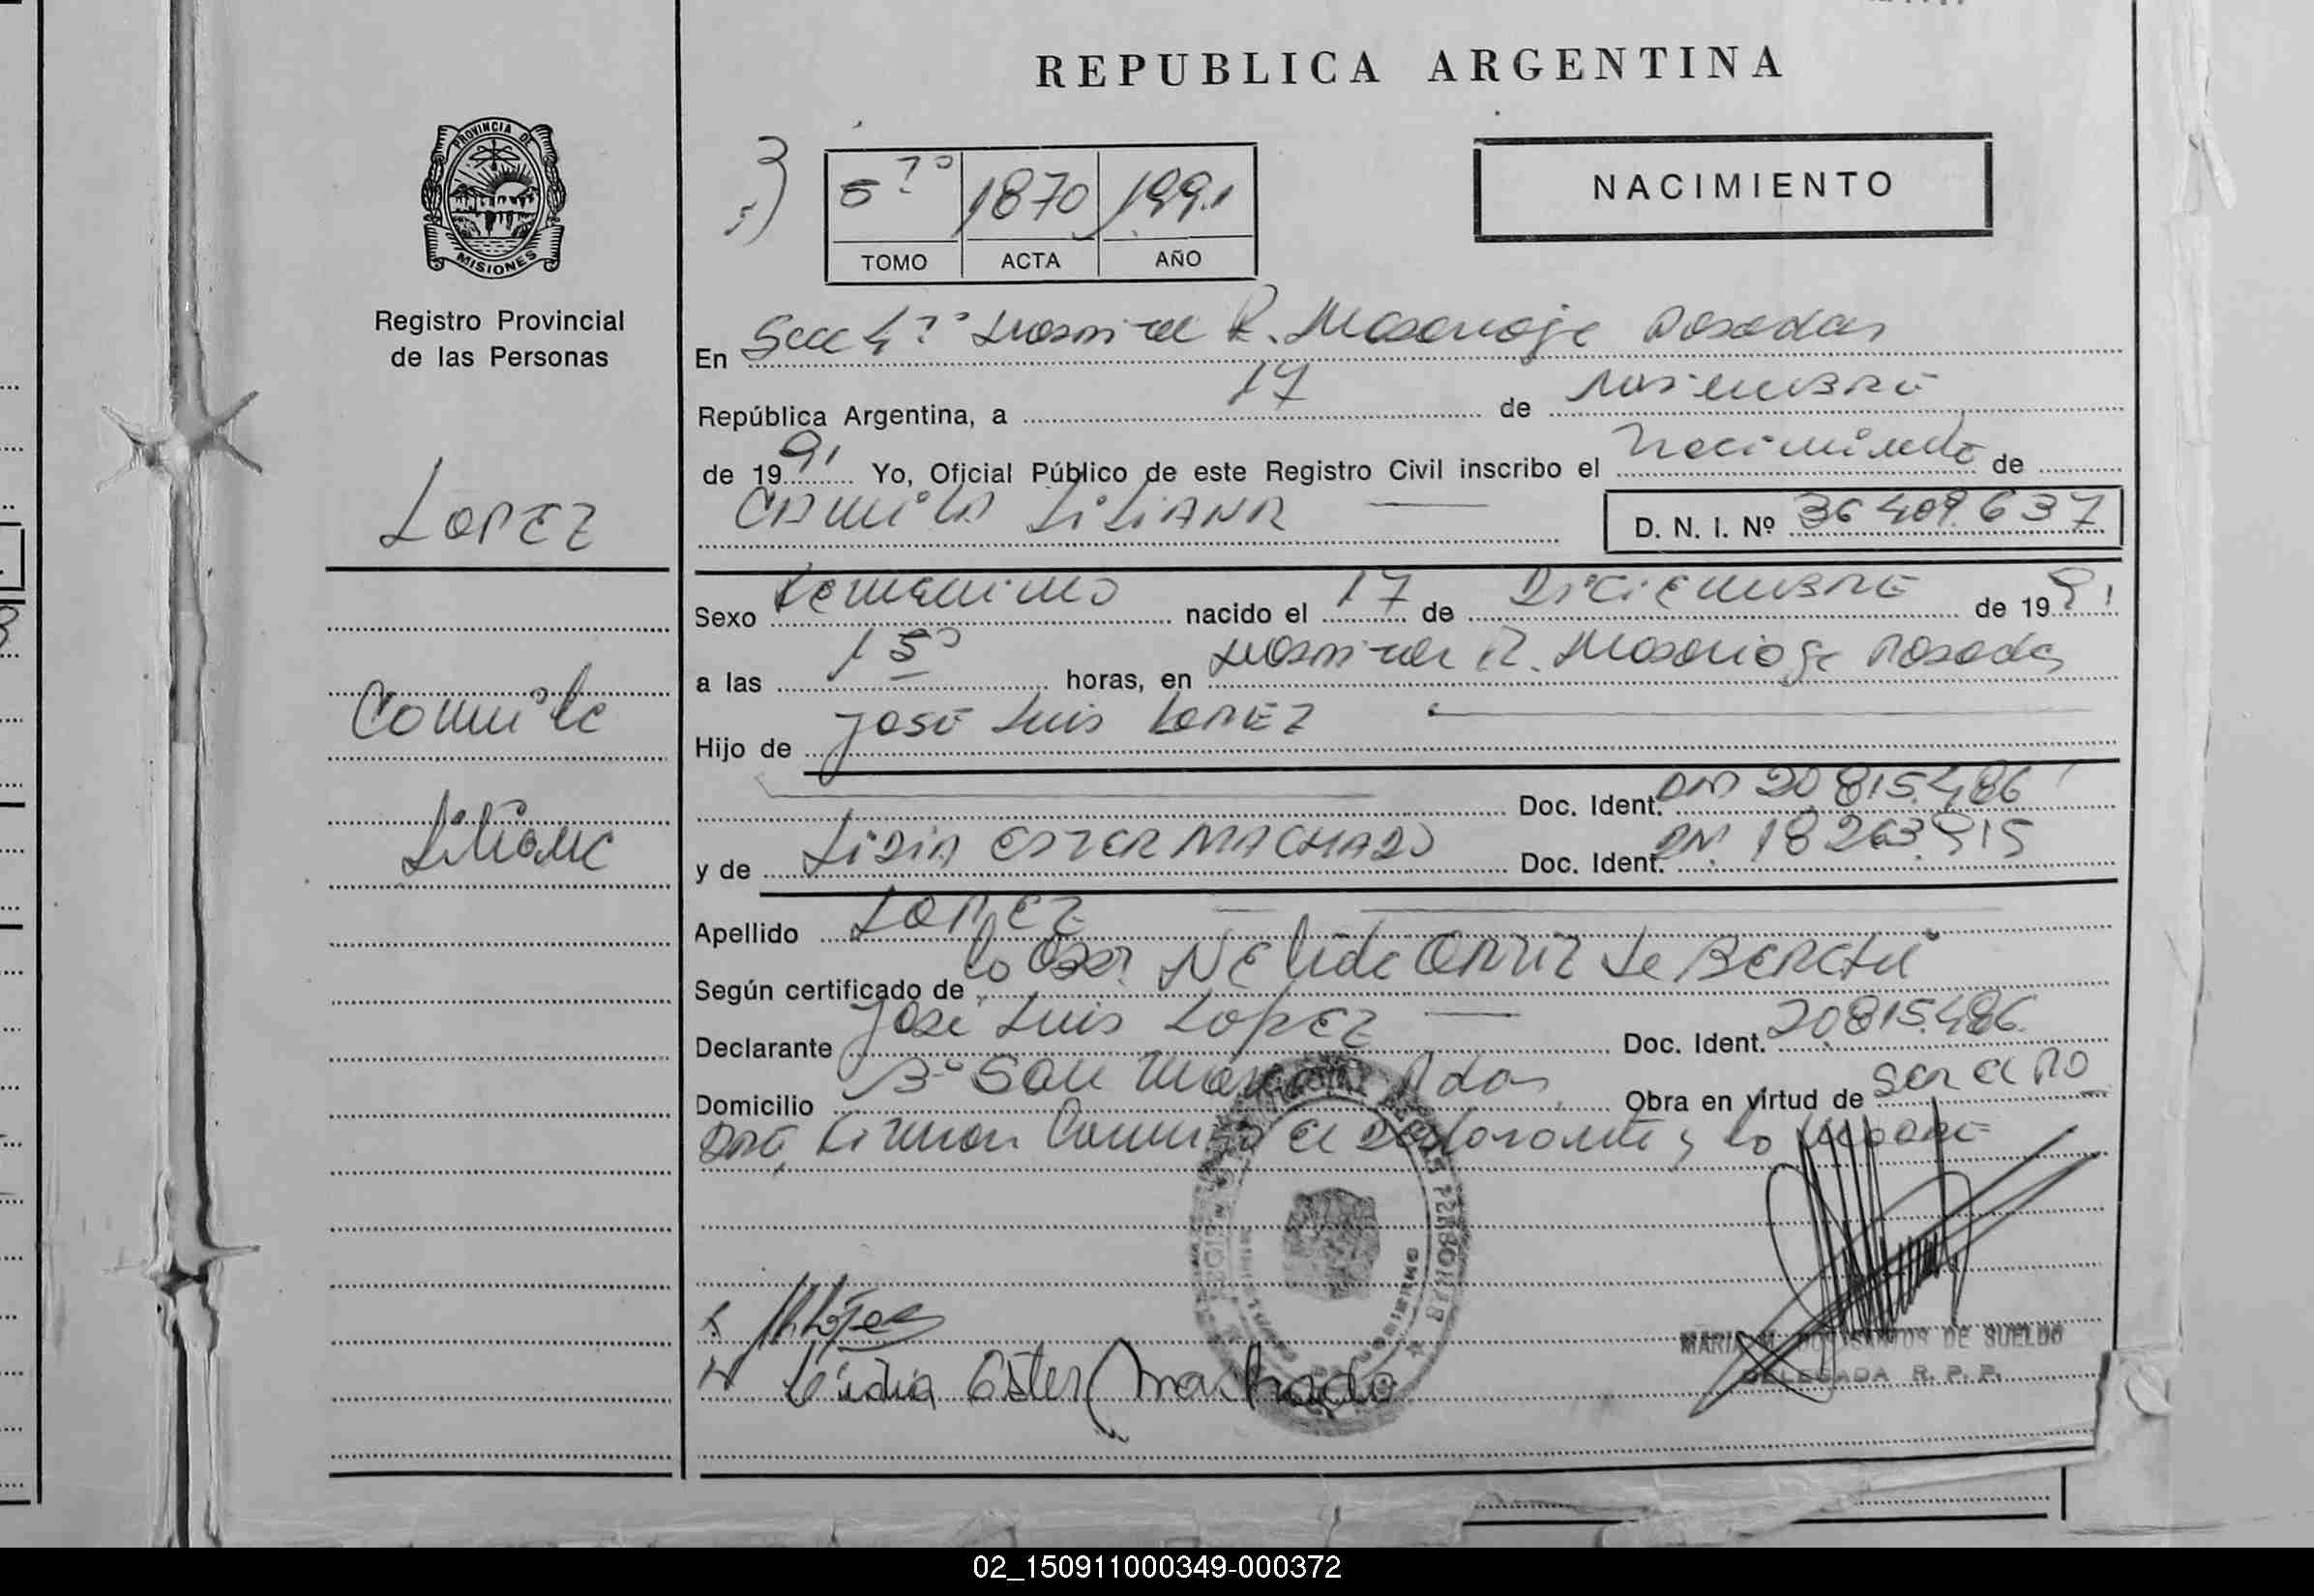 REPUBLICA ARGENTINA
PROVINCIA DE
MISIONES
Registro Provincial
de las Personas
LOPEZ
Camila
Liliana
5 1870 1991
TOMO ACTA AÑO
NACIMIENTO
En Secc 4 Hospital R. Madariaga Posadas
República Argentina, a 17 de
de 1991 Yo, Oficial Público de este Registro Civil inscribo el nacimiento de
CAMILA LILIANA D. N. I. Nº 36 409.637
Sexo Femenino nacido el 17 de DICIEMBRE de 1991
a las 15 horas, en Hospital R. Madariaga Posadas
Hijo de JOSE Luis LOPEZ
Doc. Ident. DNI 20.815.486
y de LIDIA ESTER MACHADO Doc. Ident. DNI. 18.263.915
Apellido LOPEZ
Según certificado de la Obst. NElida ORTIZ de
Declarante José Luis LopEZ Doc. Ident. 20.815.486
Domicilio Bº San Pdas. Obra en virtud de ser el PA
DRE, Firman Conmigo el Declarante y la Madre
López
Lidia Ester Machado
MARIA M. DOS SANTOS DE SUELDO
DELEGADA R. P. P.
02_150911000349-000372